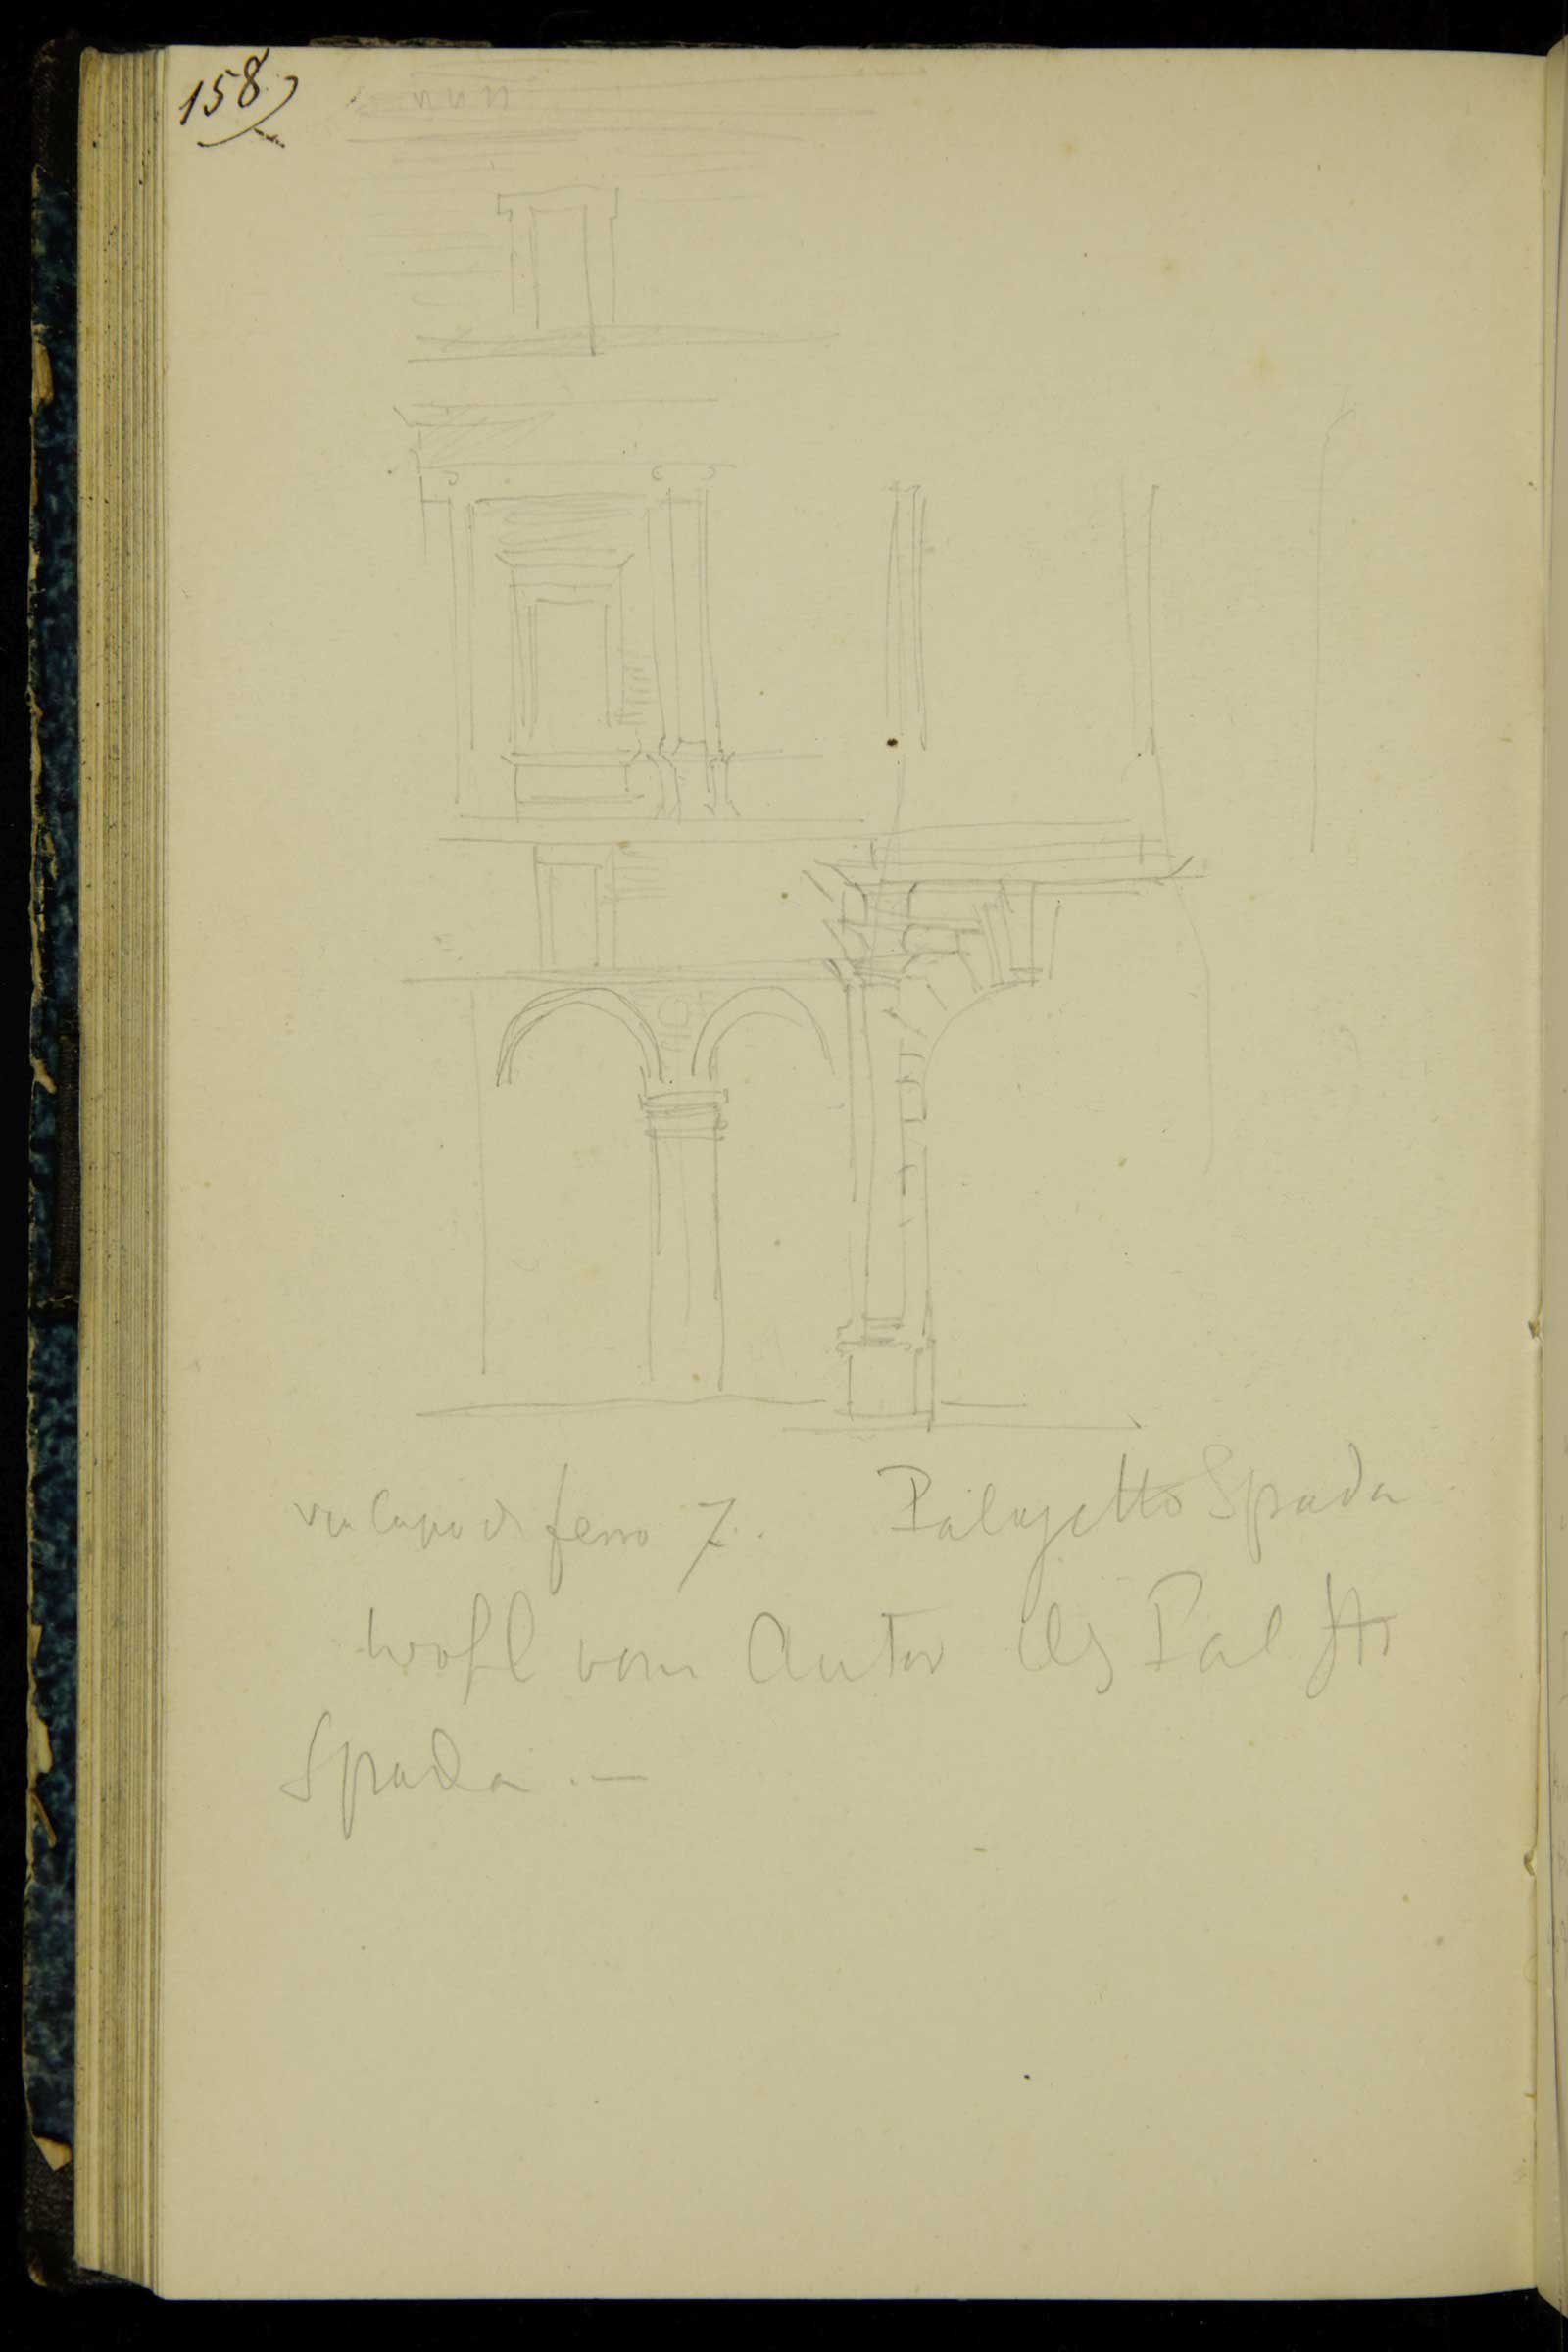 158)
via Capo di ferro 7. Palazetto Spada
wohl vom Autor des Pal
Spada . —